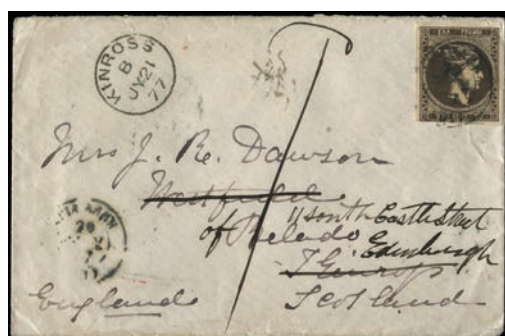 KINROSS
B
JY21
77
ΕΛΛ
Mrs J. R. Dawson
Westfield
11 South Castle Street
of
Edinburgh
England
Scotland